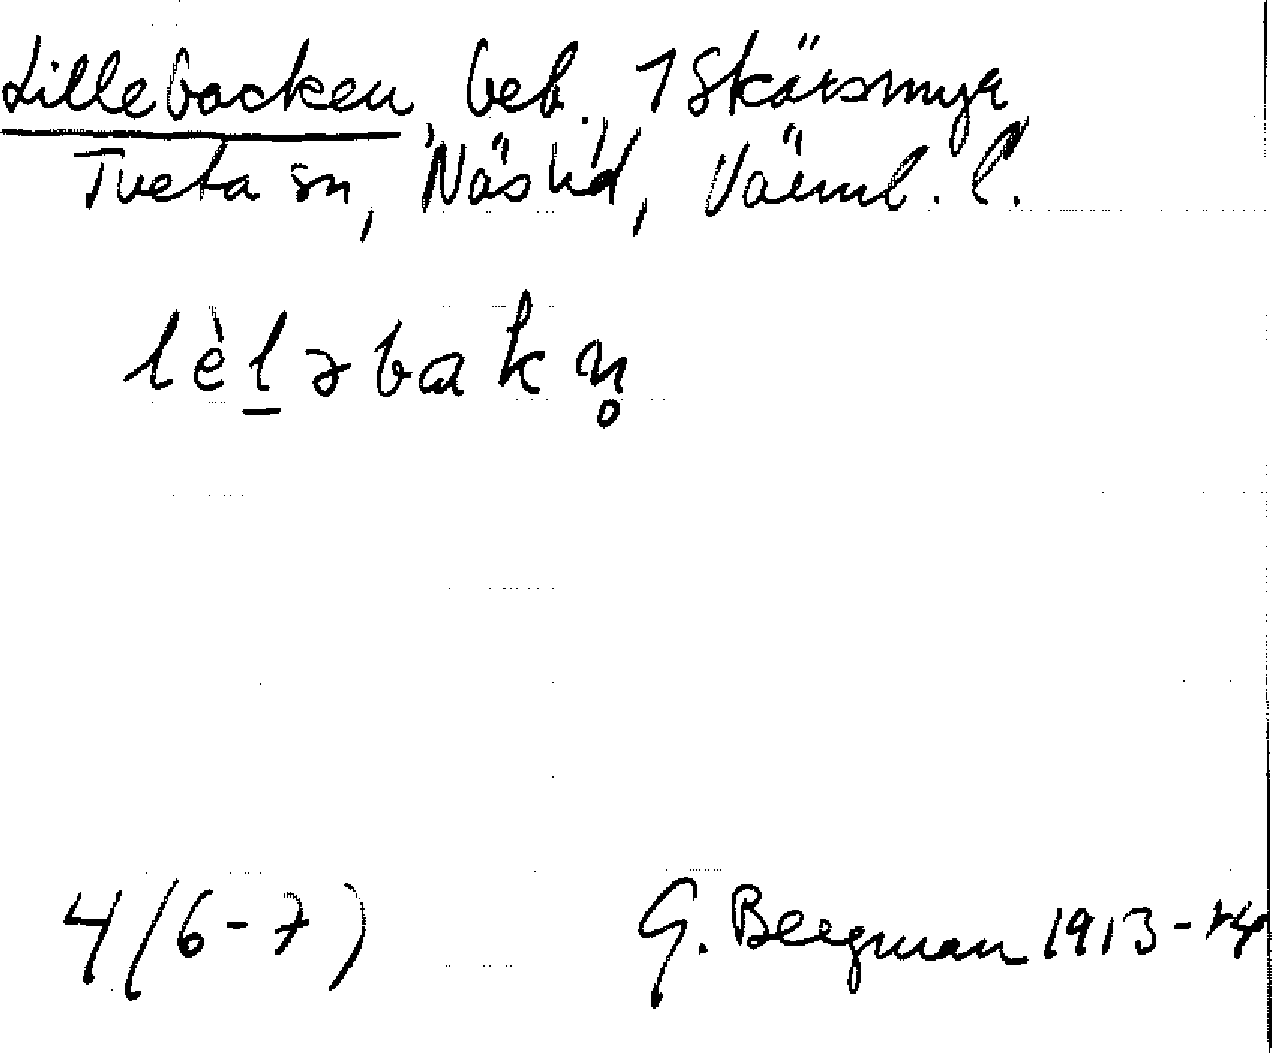 Lillebacken, beb., 1 Skårsmyr
Tveta sn, Näs hd, Värml. l.
lèl̠əbakn̥
4 (6-7)
G. Bergman 1913-14